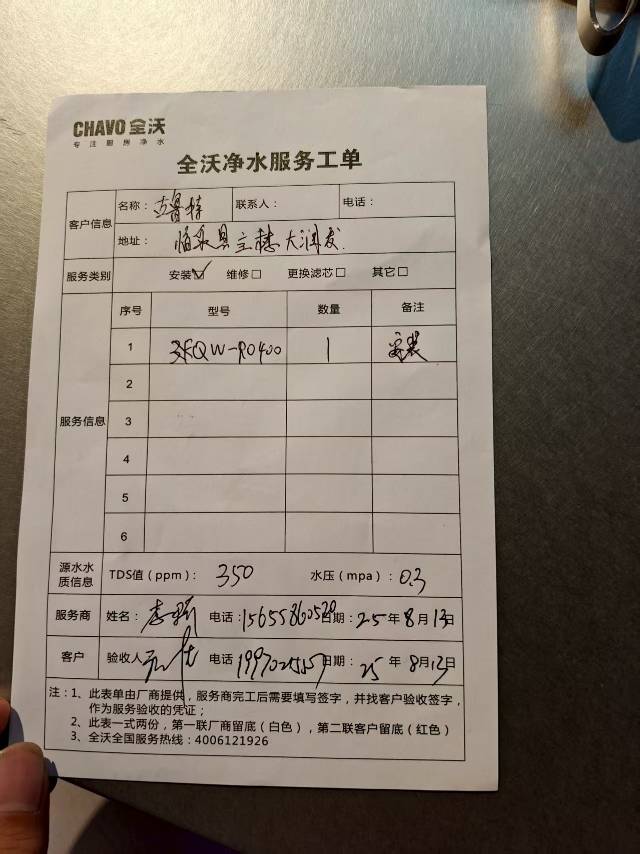 CHAVO 全沃
专注厨房净水
全沃净水服务工单
客户信息 名称： 古鲁特 联系人： 电话：
地址： 临泉县 大润发
服务类别 安装☑ 维修□ 更换滤芯□ 其它□
服务信息 序号 型号 数量 备注
1 QW-RO400 1 安装
2
3
4
5
6
源水水质信息 TDS值（ppm）： 350 水压（mpa）： 0.3
服务商 姓名： 李 电话：15655860528 日期：25年8月13日
客户 验收人 电话 日期：25年8月13日
注：1、此表单由厂商提供，服务商完工后需要填写签字，并找客户验收签字，
作为服务验收的凭证；
2、此表一式两份，第一联厂商留底（白色），第二联客户留底（红色）
3、全沃全国服务热线：4006121926